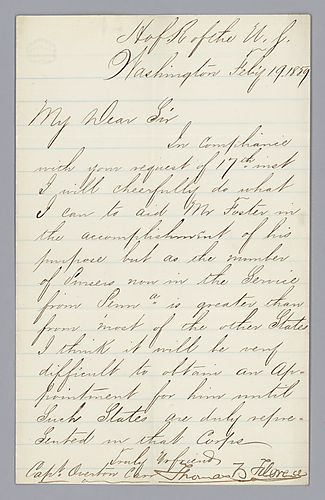 H of R of the U. S.
Washington Feby 19. 1859
My Dear Sir
In compliance
with your request of 17th inst
I will cheerfully do what
I can to aid Mr Foster in
the accomplishment of his
purpose but as the number
of Pursers now in the Service
from Penn a is greater than
from most of the other States
I think it will be very
difficult to obtain an Ap-
pointment for him until
Such States are duly repre-
sented in that Corps
Truly Yr friend
Capt Overton Carr Thomas B Florence